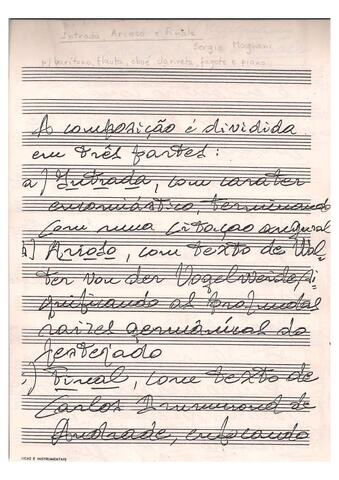 Intrada, Arioso e Finale
Sergio Magnani
p/ barítono, flauta, oboé, clarineta, fagote e piano
A composição é dividida
em três partes:
a) Intrada, com caráter
encomiástico, terminando
com uma citação
b) Arioso, com texto de Wal-
ter von der Vogelweide, si-
gnificando as profundas
raízes germânicas do
festejado
c) Final, com texto de
Carlos Drummond de
Andrade, enfocando
ICAS E INSTRUMENTAIS